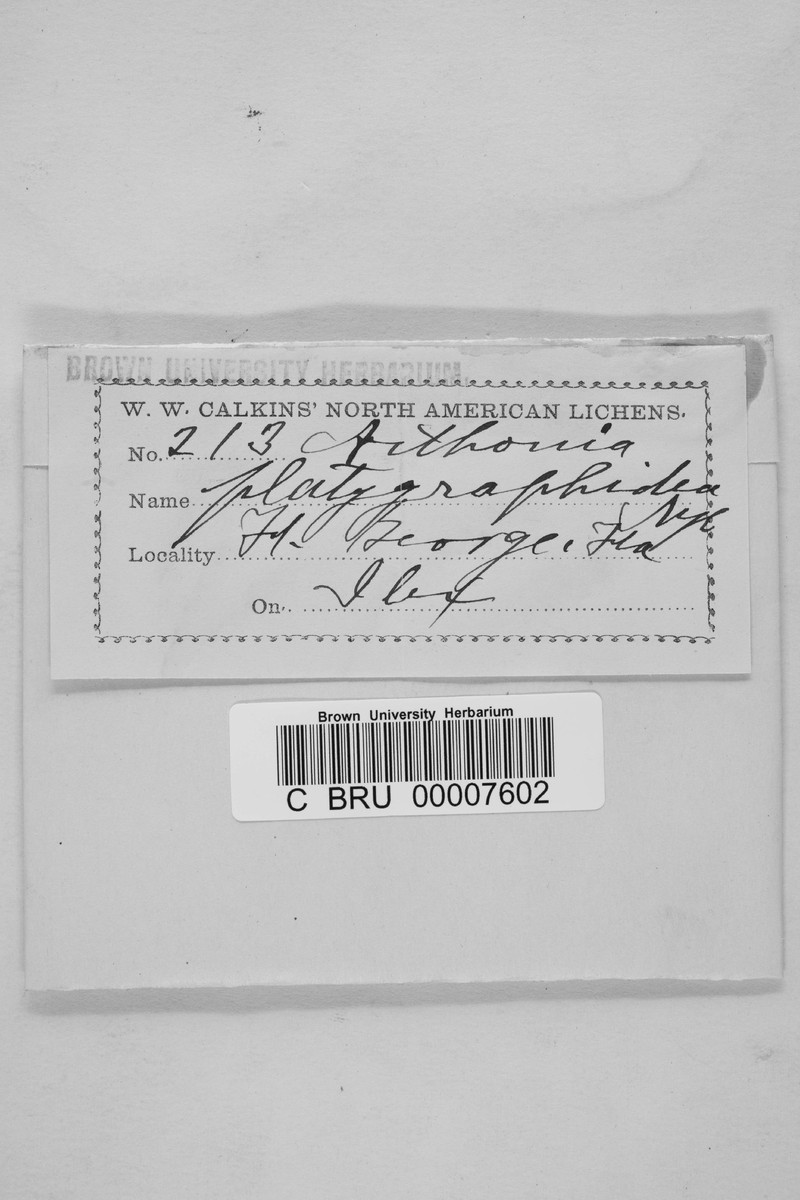 BROWN UNIVERSITY HERBARIUM.
W. W. CALKINS' NORTH AMERICAN LICHENS.
No. 213 Arthonia
Name platygraphidea
Nyl
Locality Ft. George, Fla
On Ilex
Brown University Herbarium
C BRU 00007602